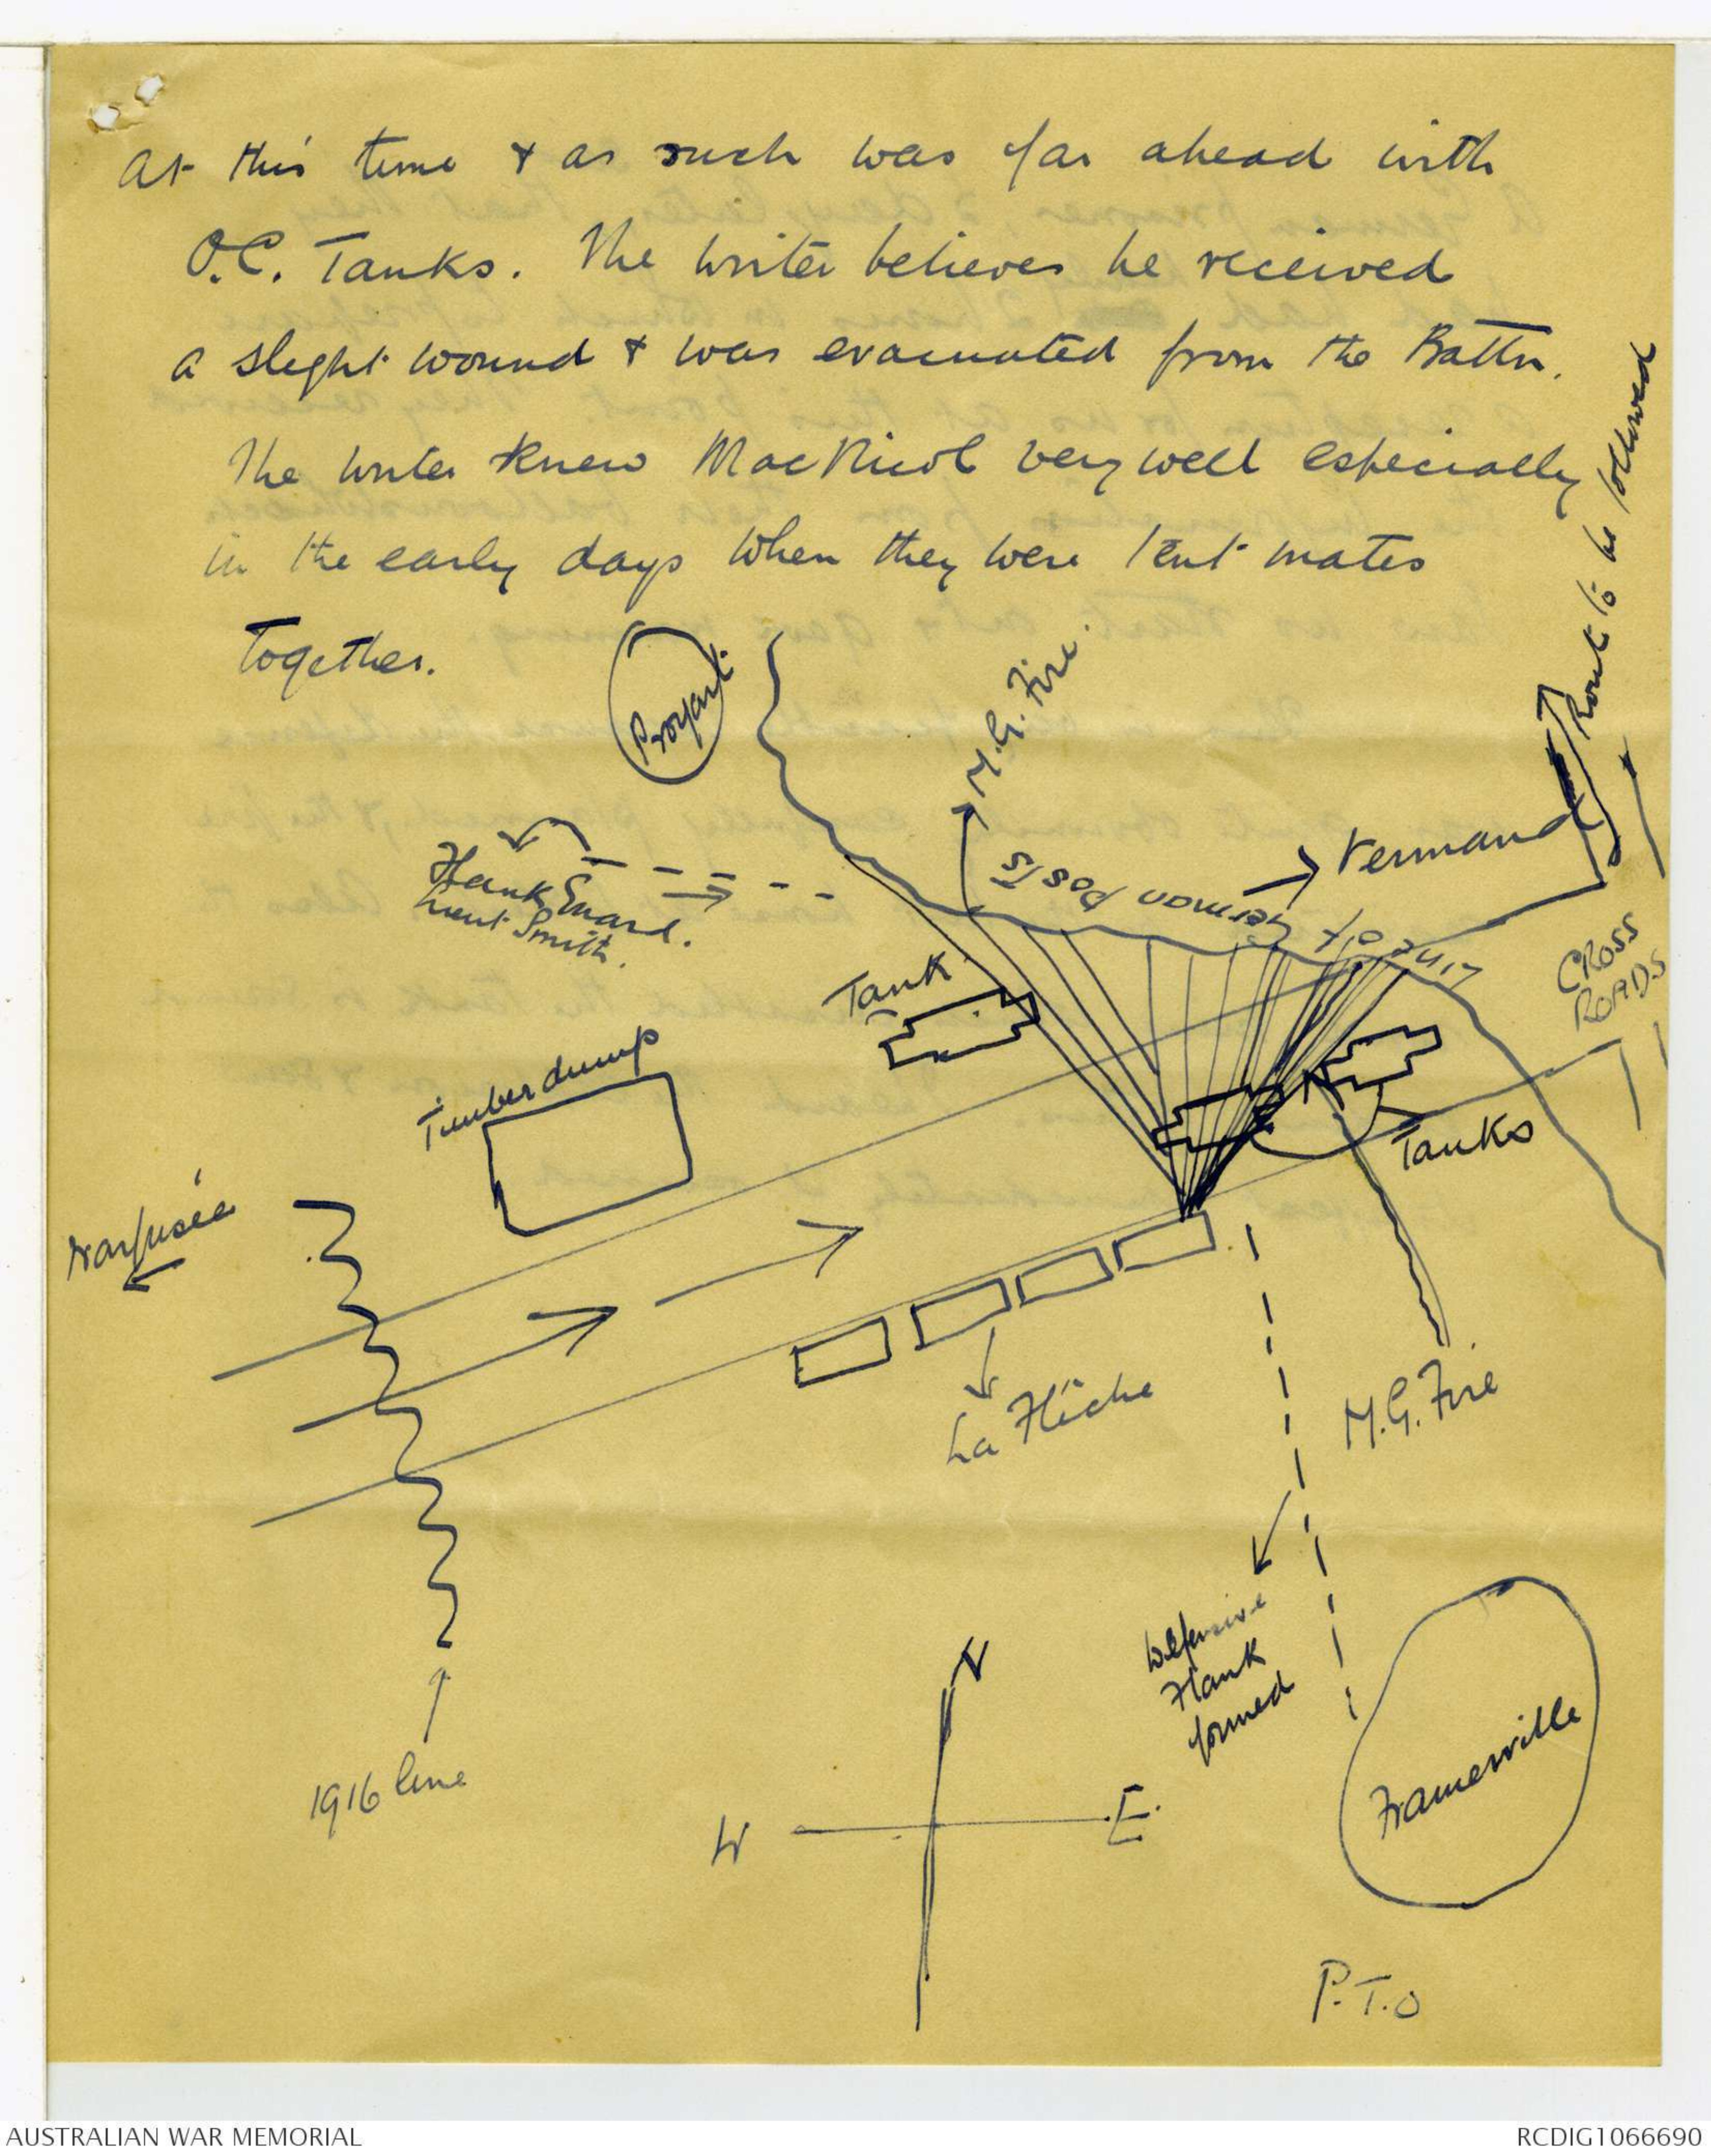 at this time & as such was far ahead with
O.C. Tanks. The writer believes he received
a slight wound & was evacuated from the Battn.
The writer knew MacNicol very well especially
in the early days when they were tent mates
together.
Route to be followed
Proyart
M.G. Fire.
Vermand
Line of German Posts
Flank Guard.
Lieut Smith.
CROSS
ROADS
Tank
Timber dump
Tanks
Warfusée
La Flêche
M.G. Fire
Defensive
Flank
formed
N
1916 line
W
E.
Framerville
P.T.O
AUSTRALIAN WAR MEMORIAL
RCDIG1066690